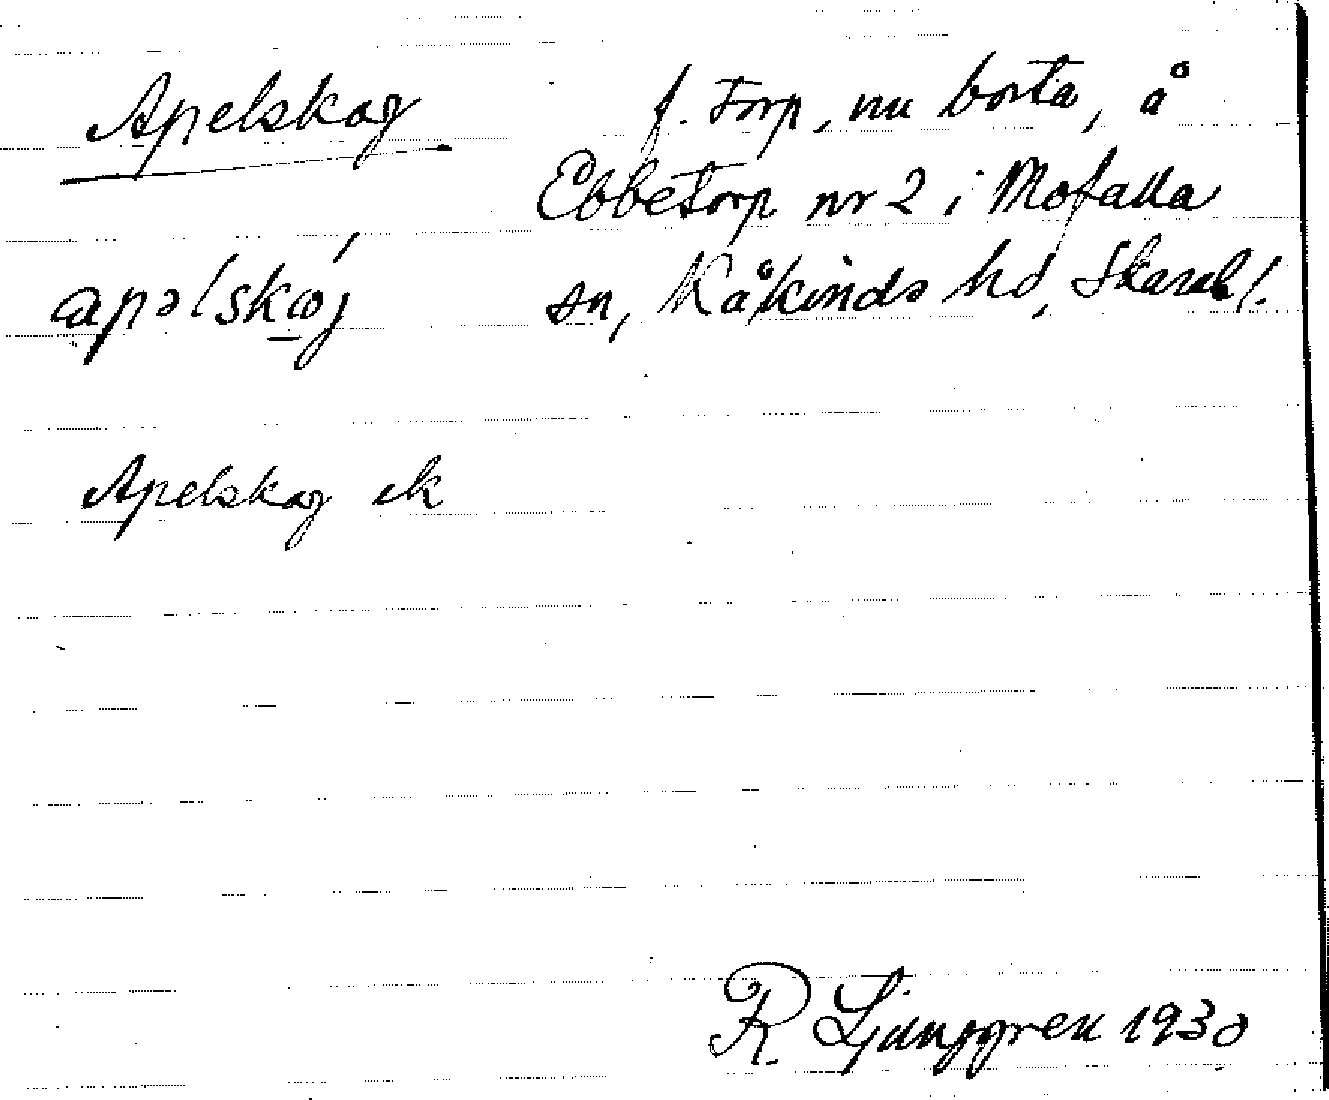 Apelskog f. torp, nu borta, å
Ebbetorp nr 2 i Mofalla
apəlskoj sn, Kåkinds hd, Skarab l.
Apelskog ek
R Ljunggren 1930